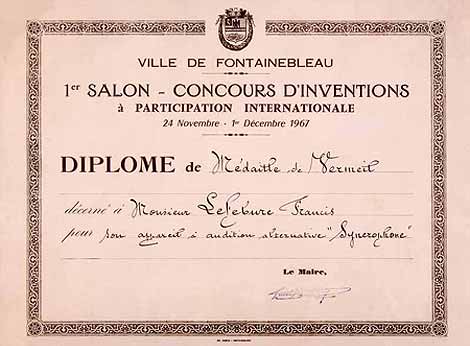 VILLE DE FONTAINEBLEAU
1er SALON - CONCOURS D'INVENTIONS
à PARTICIPATION INTERNATIONALE
24 Novembre - 1er Décembre 1967
DIPLOME de Médaille de Vermeil
décerné à Monsieur Lefebure Francis
pour son appareil à audition alternative "Synerophone"
Le Maire,